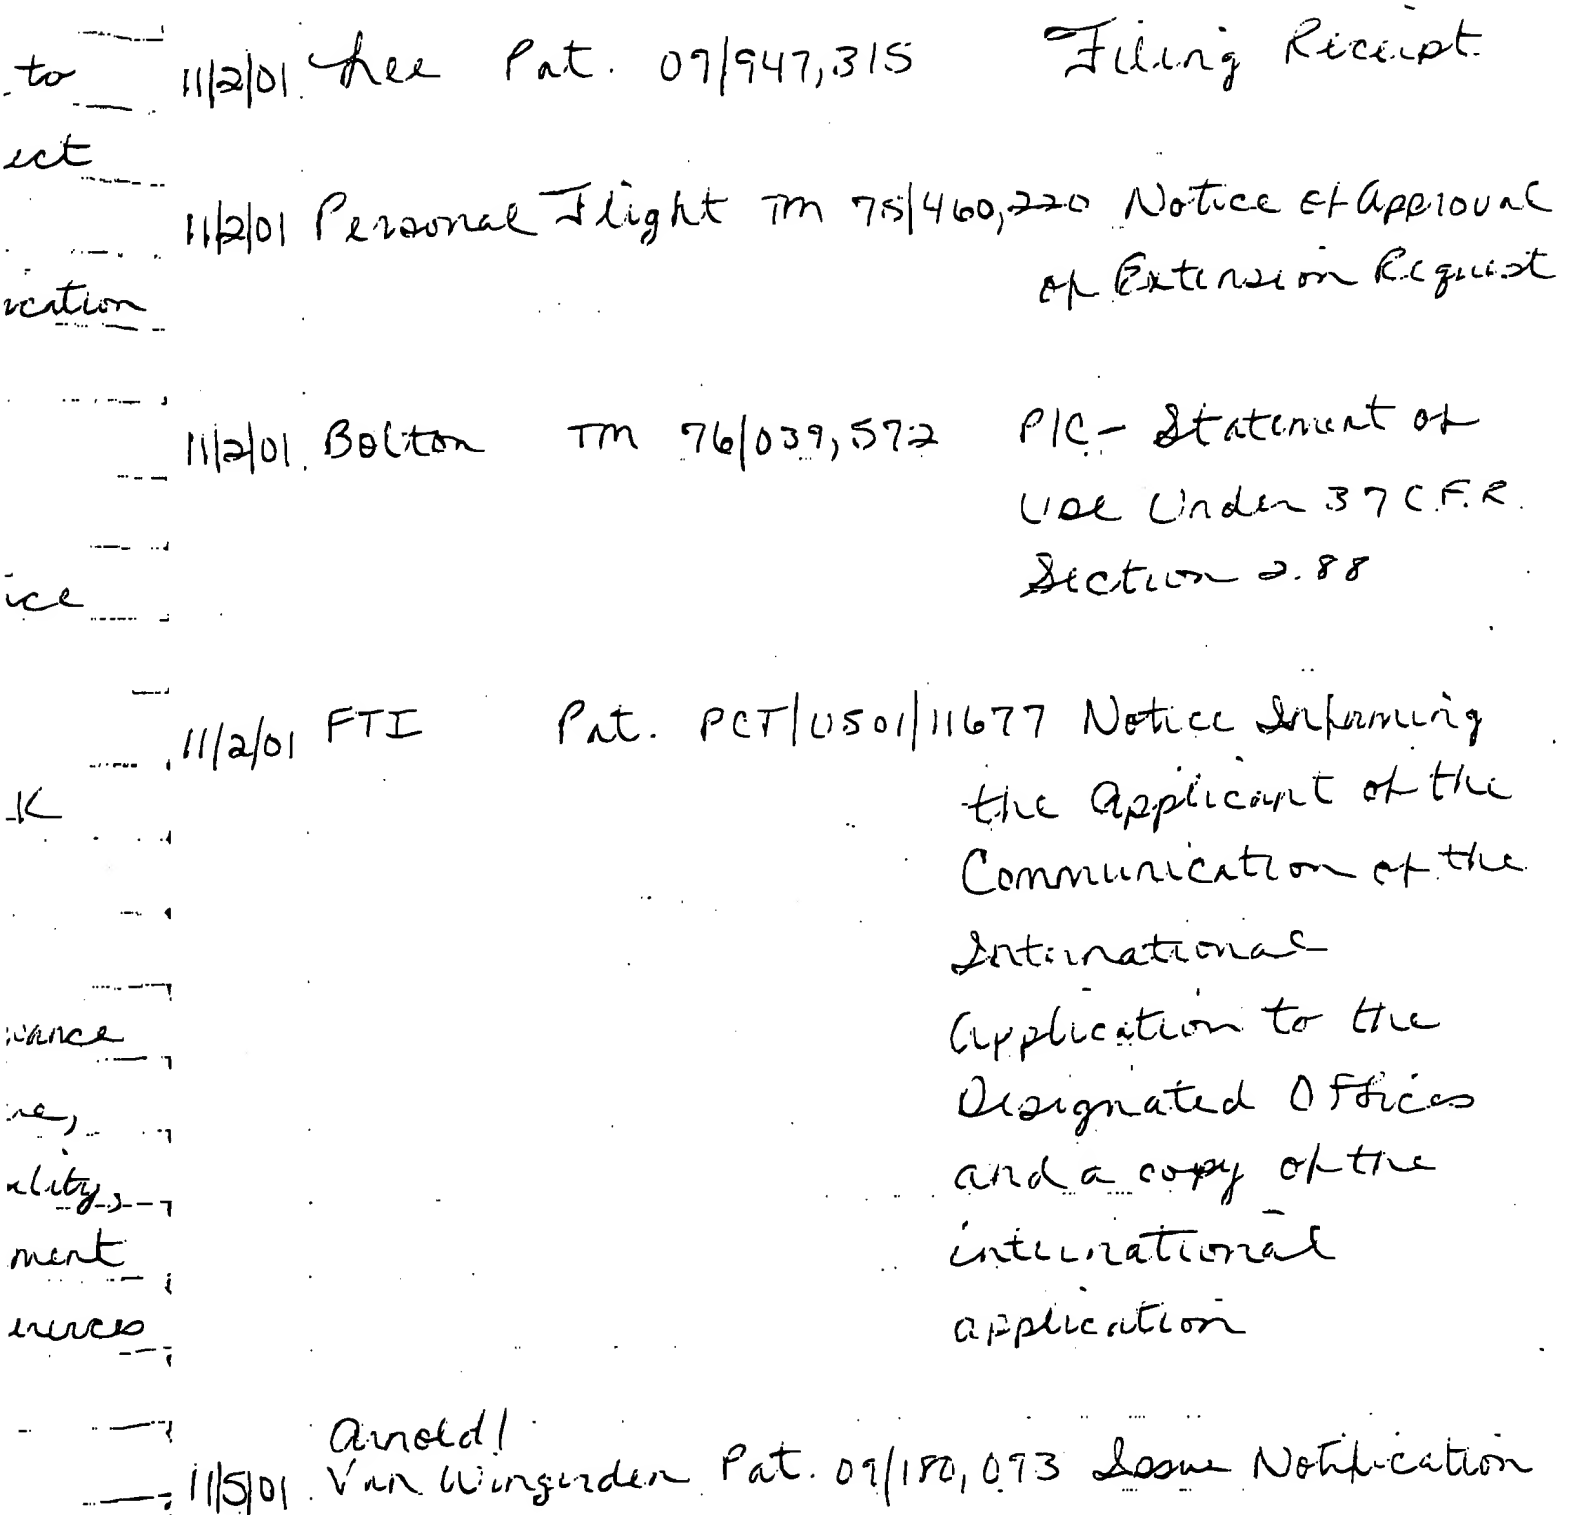 to
11/2/01 Lee Pat. 09/947,315 Filing Receipt
ect
11/2/01 Personal Flight TM 75/460,220 Notice of Approval
of Extension Request
ication
11/2/01 Bolton TM 76/039,572 P/C- Statement of
Use Under 37 C.F.R.
Section 2.88
ice
11/2/01 FTI Pat. PCT/US01/11677 Notice Informing
the Applicant of the
K
Communication of the
International
Application to the
iance
Designated Offices
re,
and a copy of the
ality,
international
ment
application
erences
Arnold/
11/5/01 Van Wingerden Pat. 09/180,093 Issue Notification